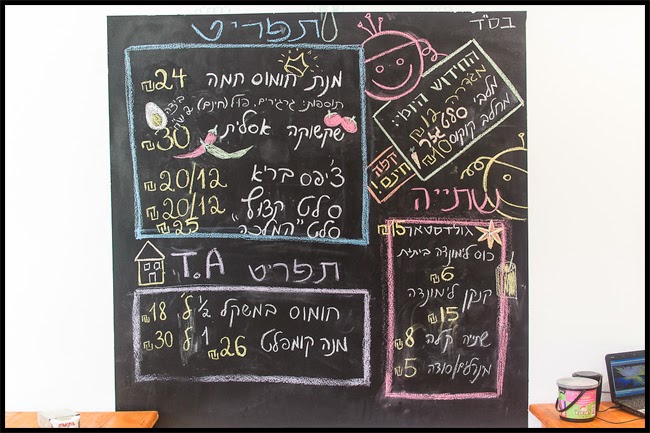 בס"ד
תפריט
מנת חומוס חמה 24 ₪
תוספות: גרגרים, פול (חינם)
ביצה 2 ש"ח
שקשוקה אסלית 30 ₪
צ'יפס בריא 20/12 ₪
סלט קצוץ 20/12 ₪
סלט "המלכה" 25 ₪
החידוש היומי:
מג'דרה 12 ₪
מלבי
מחלב קוקוס 10 ₪
קפה
חינם!
שתייה
גולדסטאר 15 ₪
כוס לימונדה ביתית
6 ₪
קנקן לימונדה
15 ₪
שתיה קלה 8 ₪
מינרלים/סודה 5 ₪
תפריט T.A
חומוס במשקל 1/2 ל' 18 ₪
1 ל' 30 ₪
מנה קומפלט 26 ₪